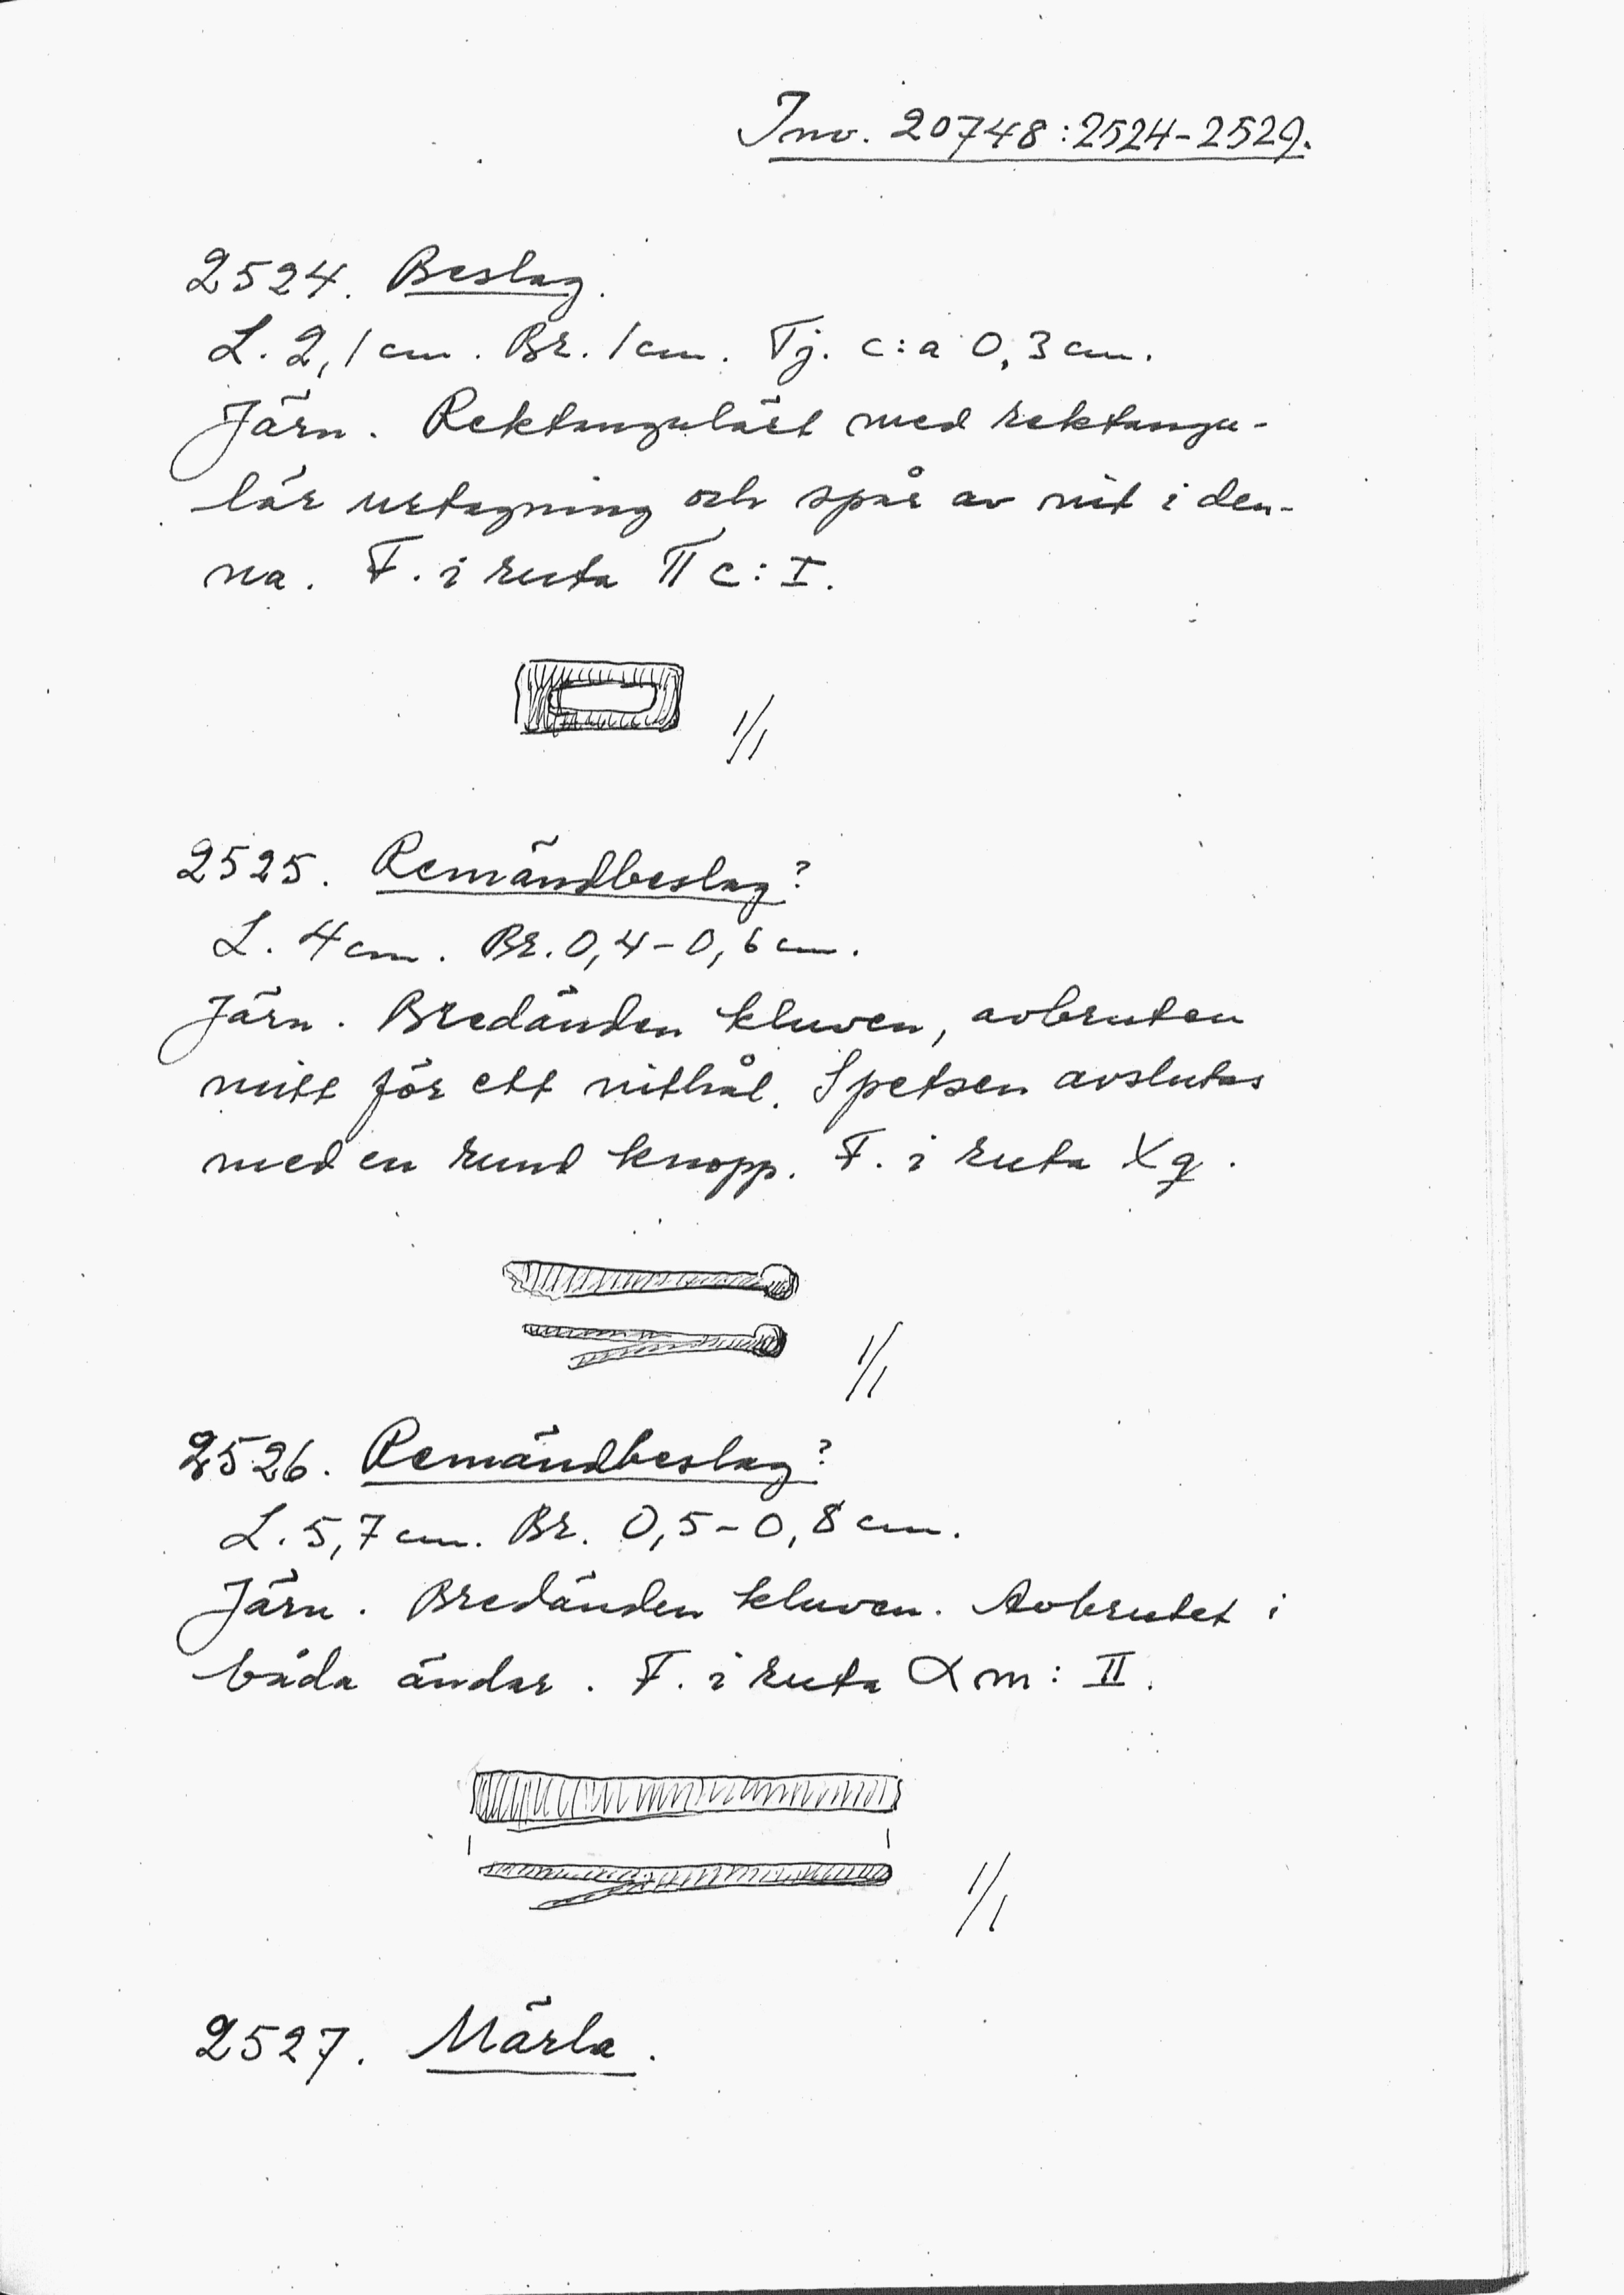 Inv. 20748:2524-2529.
2524. Beslag.
L. 2,1 cm. Br. 1 cm. Tj. c:a 0,3 cm.
Järn. Rektangulärt med rektangu-
lär urtagning och spår av nit i den-
na. F. i ruta II c: I.
1/1
2525. Remändbeslag?
L. 4 cm. Br. 0,4-0,6 cm.
Järn. Bredänden kluven, avbruten
mitt för ett nithål. Spetsen avslutas
med en rund knopp. F. i ruta X g.
1/1
2526. Remändbeslag?
L. 5,7 cm. Br. 0,5-0,8 cm.
Järn. Bredänden kluven. Avbrutet i
båda ändar. F. i ruta α m: II.
1/1
2527. Märla.